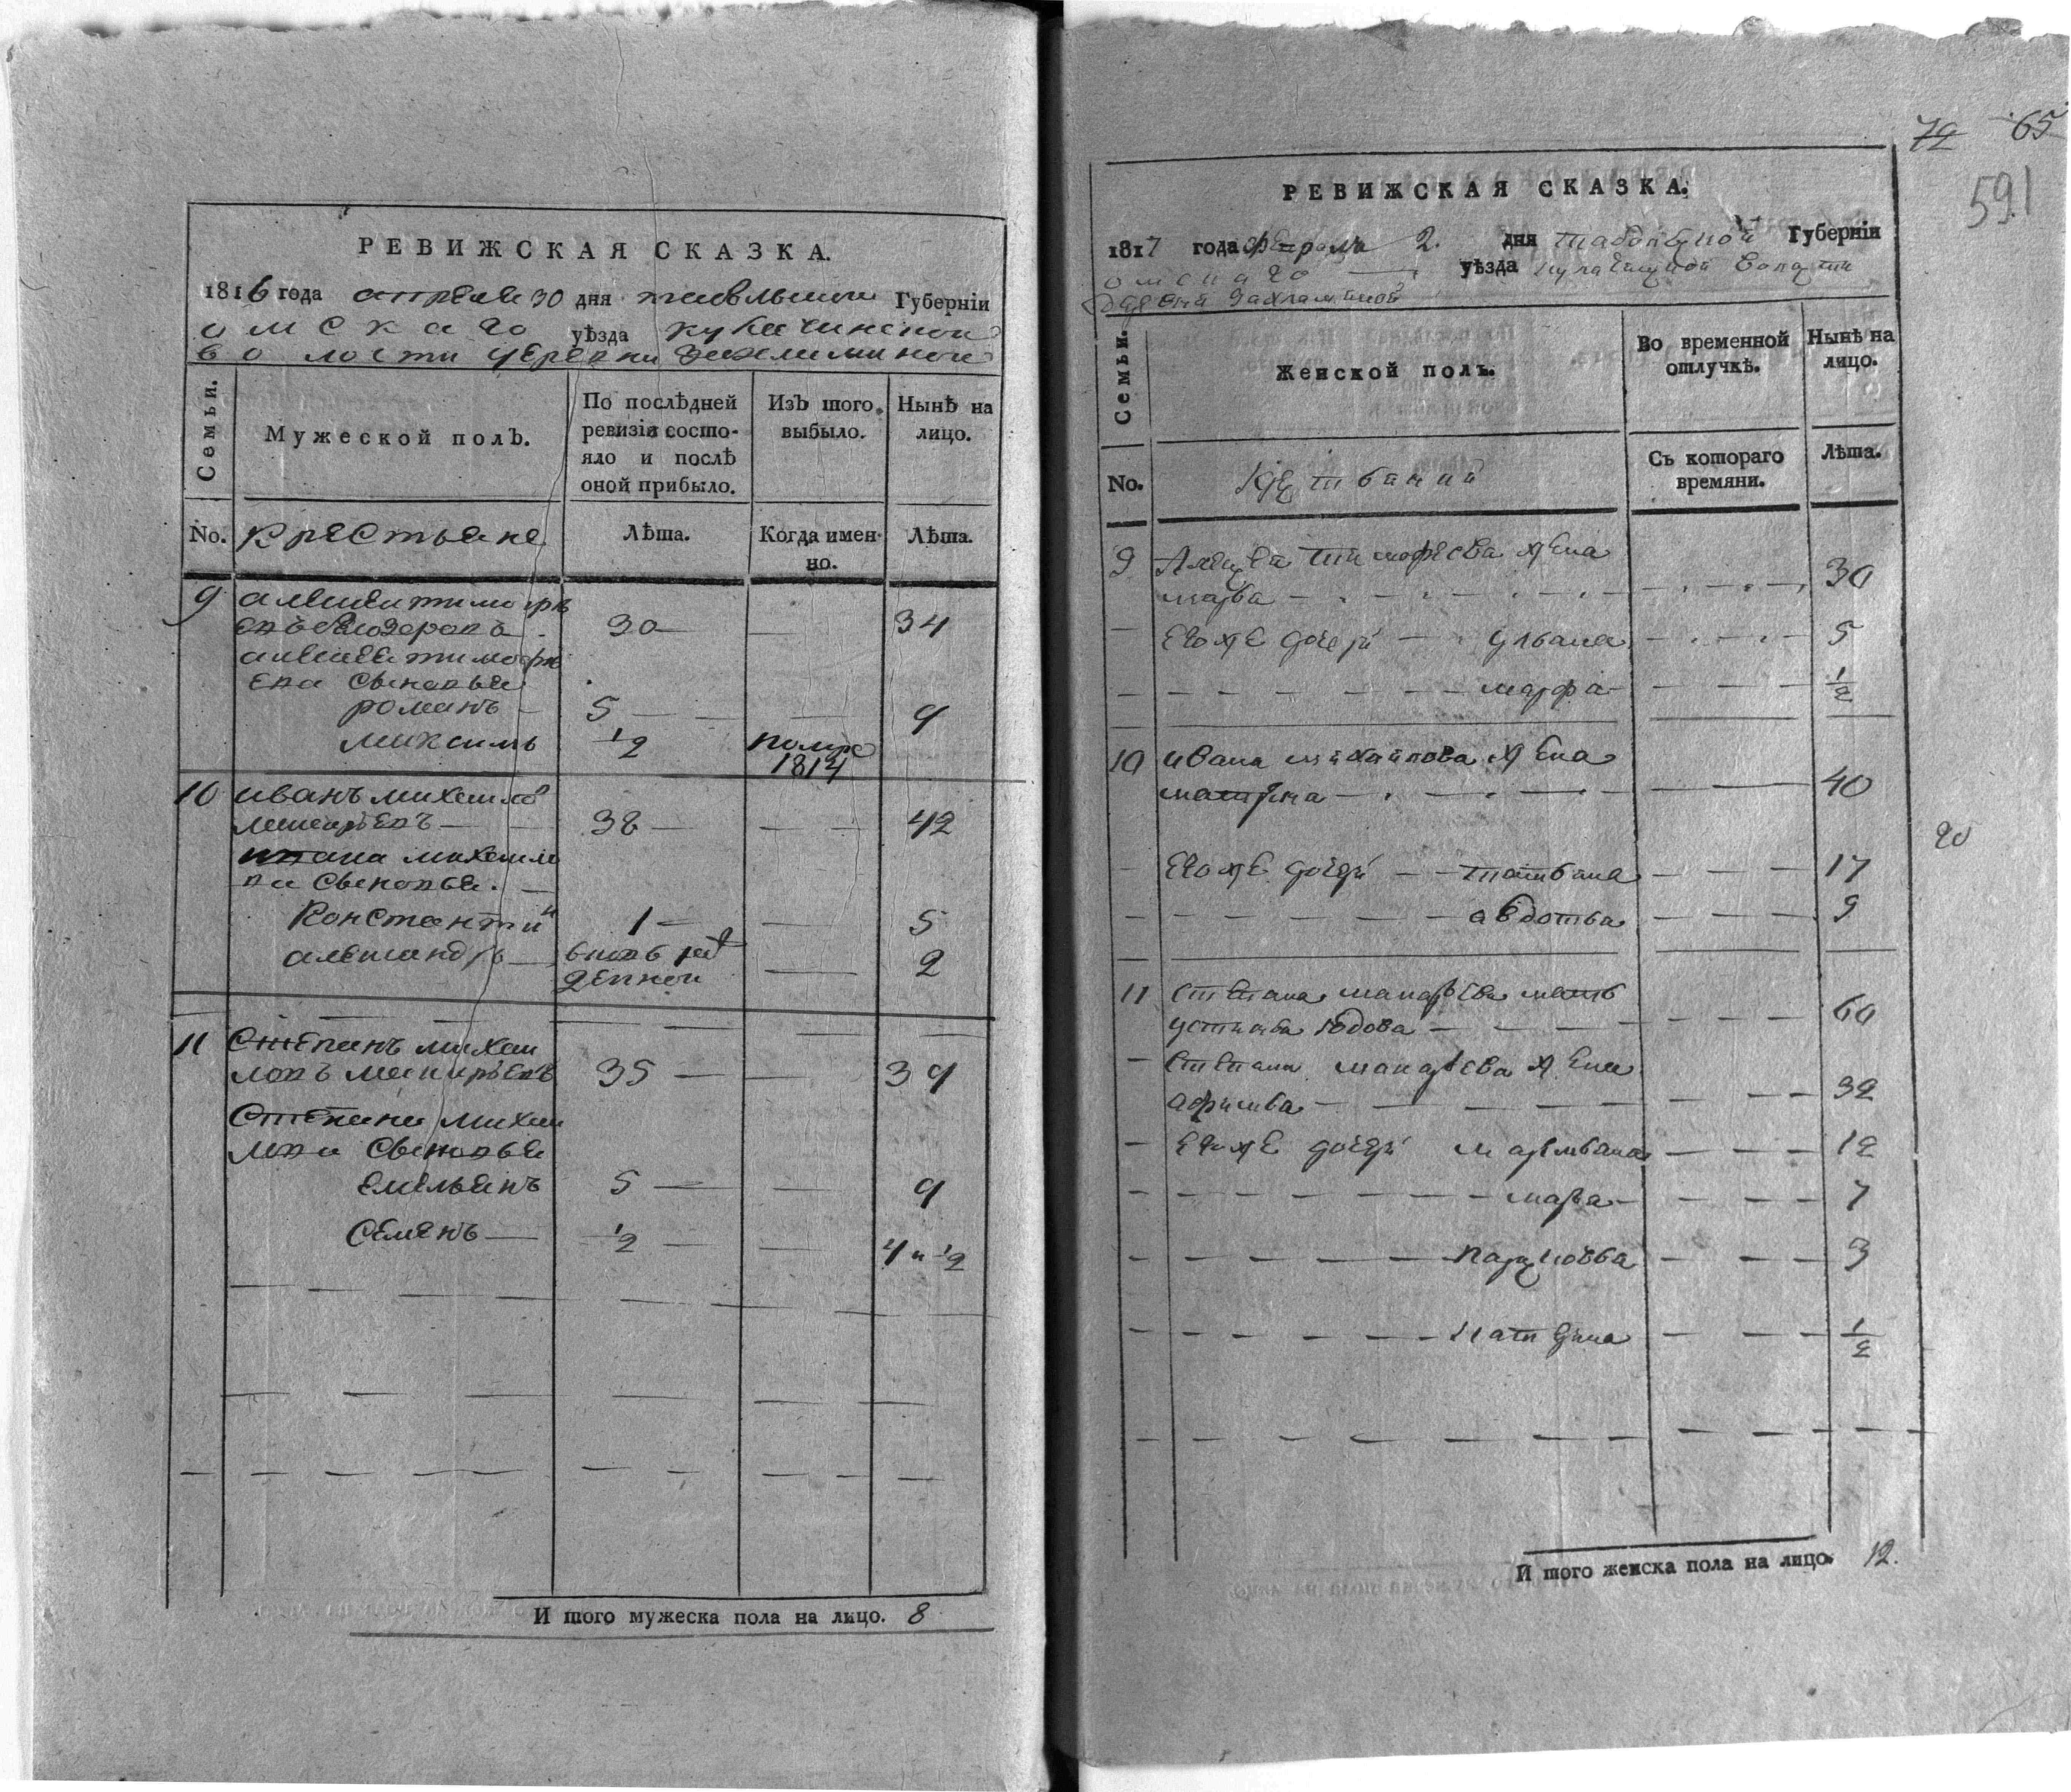 РЕВИЖСКАЯ СКАЗКА.
1816 года апреля 30 дня тобольской Губернїи
омскаго уѣзда кулачинской
волости деревни захламиной
Семьи.
Мужеской полъ.
По послѣдней
ревизіи состо-
яло и послѣ
оной прибыло.
Изъ того
выбыло.
Нынѣ на
лицо.
No.
крестьяне
Лѣта.
Когда имен-
но.
Лѣта.
9 алексеи тимофе
евъ белозеровъ 30 — — 34
алексея тимофе
ева сыновья
романъ — 5 — — — 9
максимъ 1/2 помре
1814
10 иванъ михаило
макарьевъ — 38 — — — 42
ивана михаило
ва сыновья. —
Константин 1 — — 5
александръ — вновь ро
— 2
11 Степанъ михаи
ловъ макарьевъ 35 — — 39
Степана михаи
лова сыновья
емельянъ 5 — — 9
Семенъ — 1/2 — — 4 и 1/2
И того мужеска пола на лицо. 8
72 65
591
РЕВИЖСКАЯ СКАЗКА.
1817 года февраля 2. дня тобольской Губернїи
омскаго — уѣзда кулачинской волости
деревни захламиной
Семьи.
Женской полъ.
Во временной
отлучкѣ.
Нынѣ на
лицо.
No.
Съ котораго
времяни.
Лѣта.
9 Алексея тимофеева жена
марва — 30
— Егоже дочери — ульана — 5
— марфа — 1/2
10 ивана михайлова жена
матрена — 40
20
— Егоже дочери — татьана — 17
— авдотьа — 9
11 степана макарьева мать
устиньа вдова — 60
— степана макарьева жена
афимьа — 32
— Егоже дочери маремьана — 12
— марьа — 7
— парасковьа — 3
— катерина — 1/2
И того женска пола на лицо. 12.